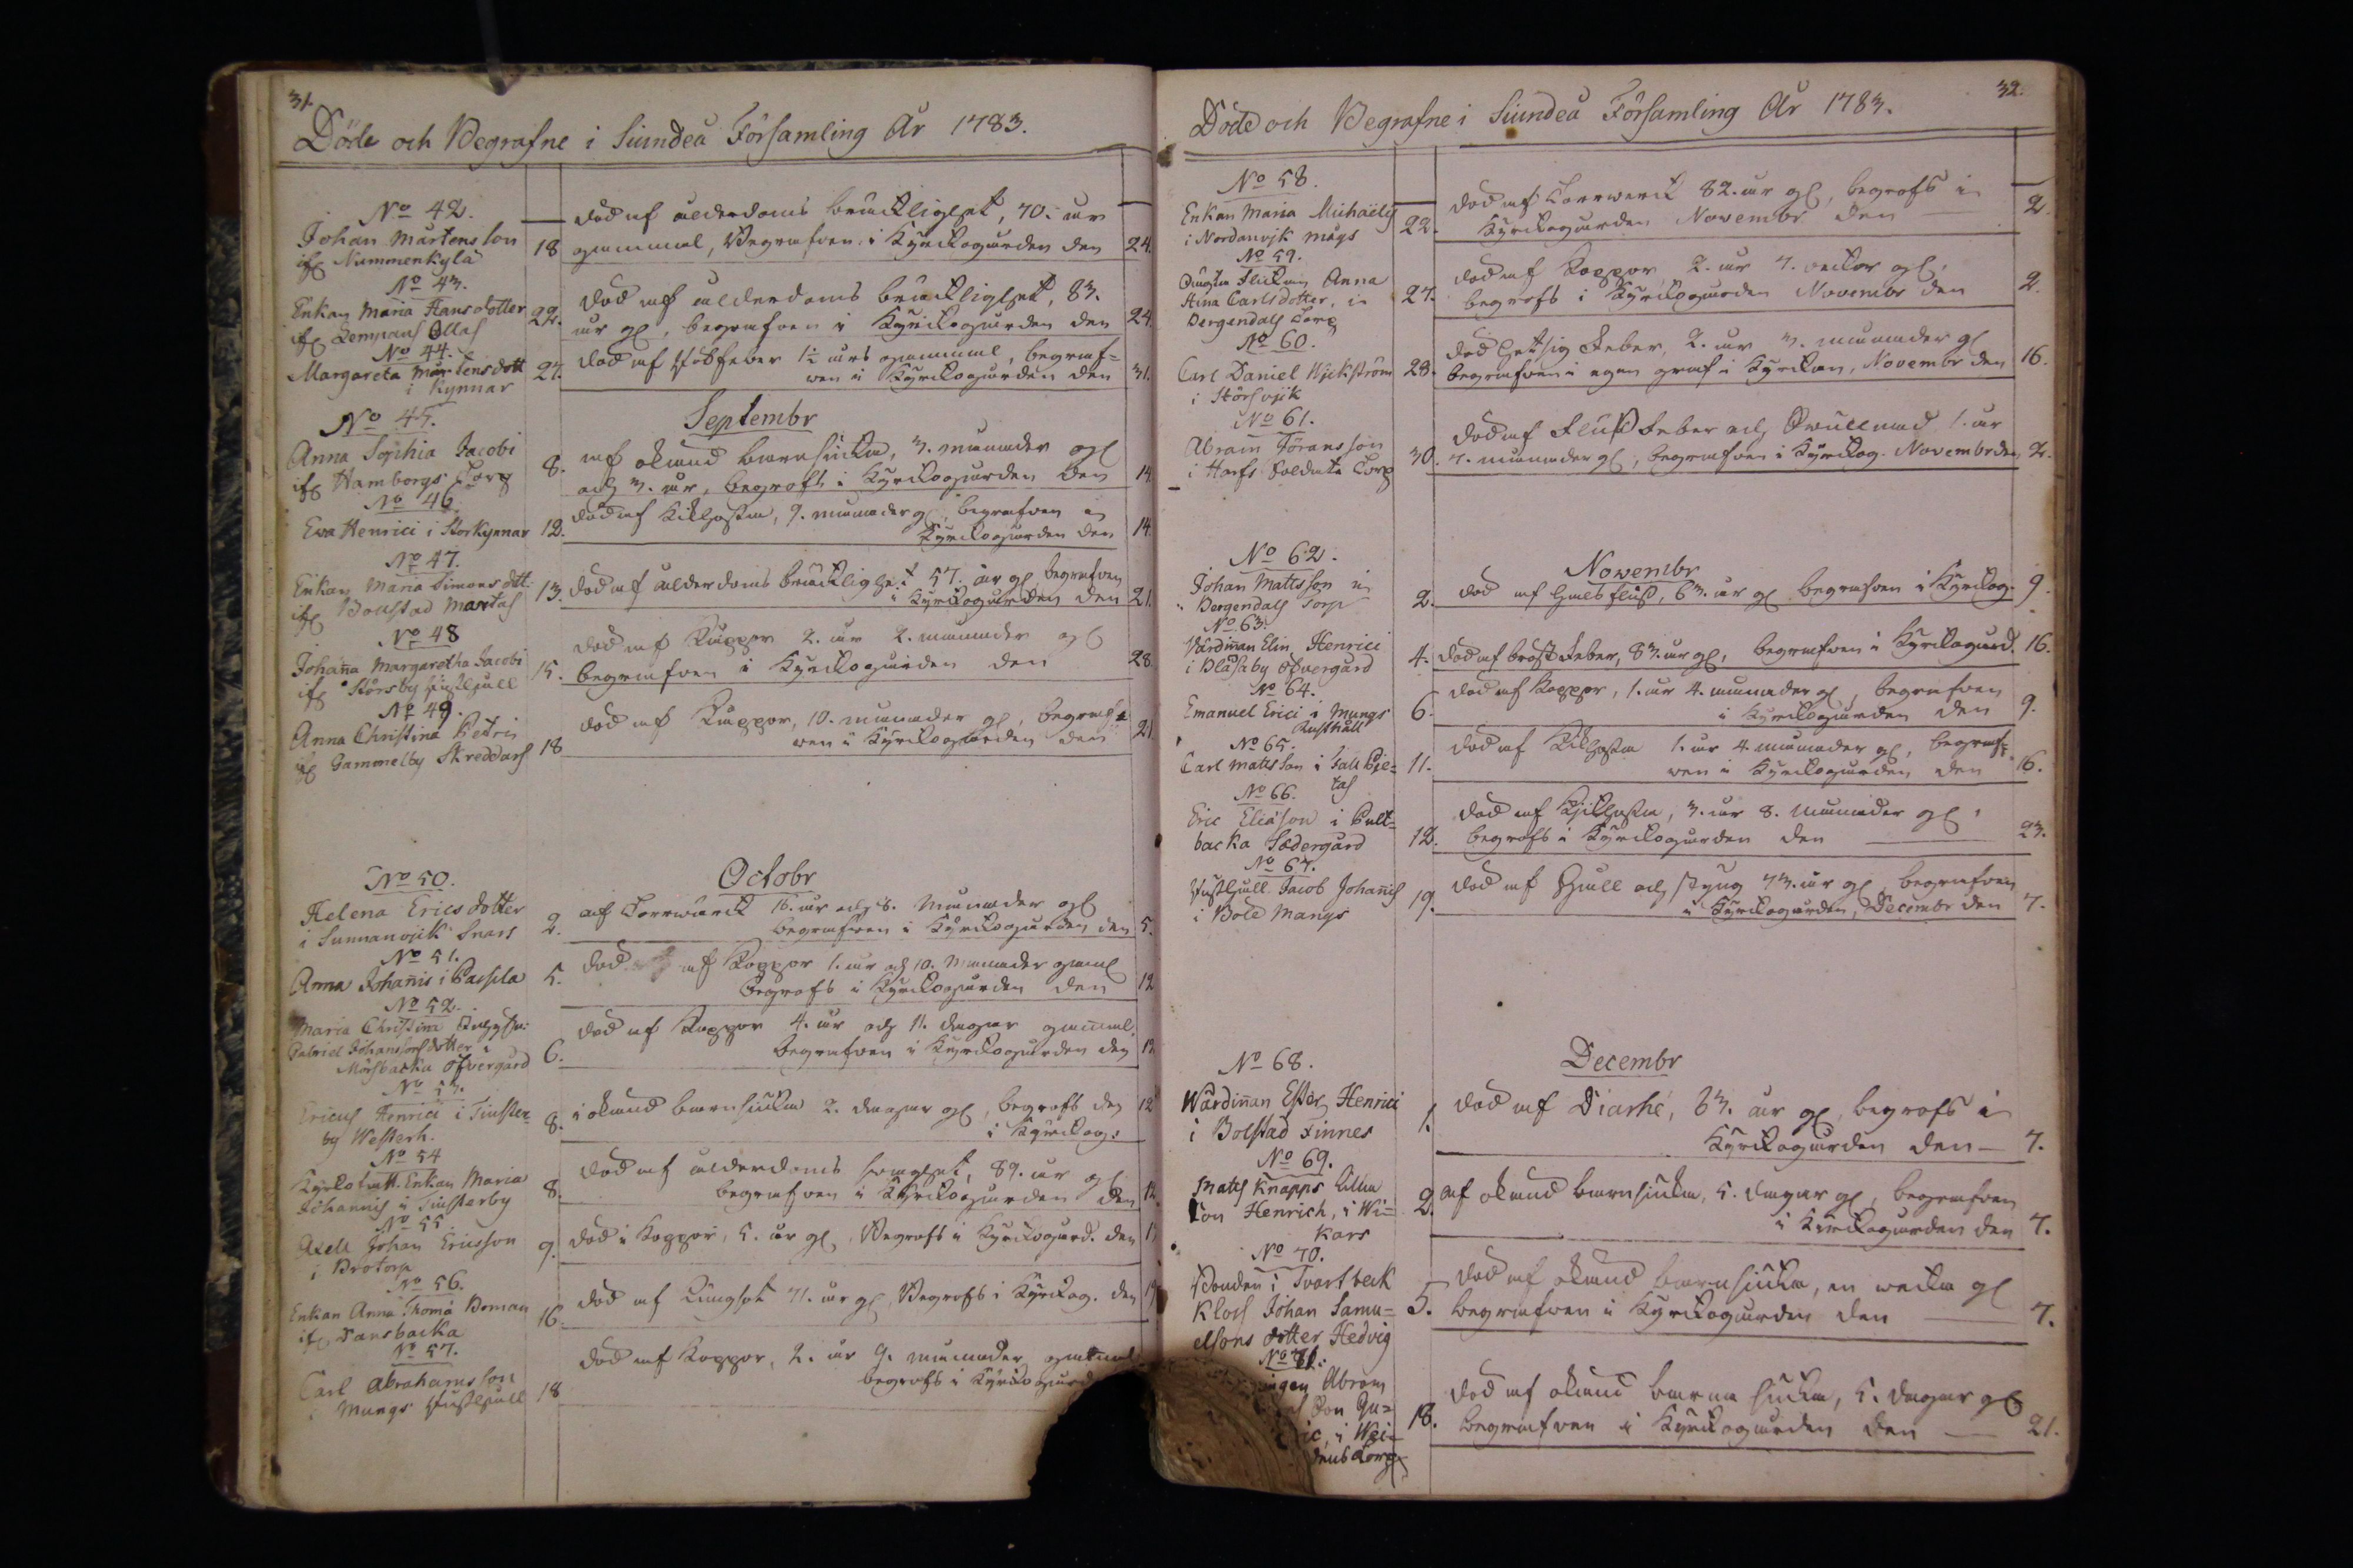 31.
Döde och Begrafne i Siundeå Församling År 1783.
No 42.
Johan Mårtensson
ifr Nummenkylä
18
död af ålderdoms bräcklighet, 70. år
gammal, Begrafven i Kyrckogården den
24.
No 43.
Enkan Maria Hansdotter
ifr Lempans Ollas
22.
död af ålderdoms bräcklighet, 83.
år gl, begrafven i Kyrckogården den
24.
No 44.
Margareta Mårtensdott
i Kynnar
27.
död af feber 1½ års gammal, begraf=
wen i Kyrckogården den
31.
Septembr
No 45.
Anna Sophia Jacobi
ifr Hamborgs Torp
8.
af okänd barnsiuka, 3. månader gl
och 3. år, begrofs i Kyrckogården den
14.
No 46.
Eva Henrici i Storkynnar
12.
död af Kikhosta, 9. månader gl, begrafven i
Kyrckogården den
14.
No 47.
Enkan Maria Simonsdott.
ifr Bolstad Martas
13.
död af ålderdoms bräcklighet 57. år gl, begrafven
i Kyrckogården den
21.
No 48
Johanna Margaretha Jacobi
ifr Störsby
15.
död af Kåppor 2. år 2. månader gl
begrafven i Kyrckogården den
28.
No 49.
Anna Christina Petri
ifr Gammelby Skreddars
18
död af Kåppor, 10. månader gl, begraf=
wen i Kyrckogården den
21
Octobr
No 50.
Helena Ericsdotter
i Sunnanvjk Snars
2.
af Torrwärk 16. år och 8. månader gl
begrafven i Kyrckogården den
5.
No 51.
Anna Johannis i Passila
5.
död af Koppor 1. år och 10. månader gaml
begrofs i Kyrckogården den
12
No 52.
Maria Christina
Gabriel Johanssons dotter i
Mörsbacka Öfvergård
6.
död af Koppor 4. år och 11. dagar gammal.
begrafven i Kyrckogården den
12
No 53.
Ericus Henrici i Tiuster=
by Westerh.
8.
i okänd barnsiuka 2. dagar gl, begrofs den
i Kyrckog:
12
No 54
Enkan Maria
Johannis i Tiusterby
8.
död af ålderdoms swaghet, 89. år gl
begrafven i Kyrckogården den
12.
No 55.
Axell Johan Ericsson
i Brotorp
9.
död i Koppor, 5. år gl, Begrofs i Kyrckogård. den
No 56.
Enkan Anna Thomä Boman
ifr Dansbacka
16.
död af Lungsot 71. år gl, Begrofs i Kyrckog. den
19
No 57.
Carl Abrahamsson
i Mungs Rusthåll
18
död af Koppor, 2. år 9. månader gammal
begrofs i Kyrckogård
32.
Döde och Begrafne i Siundeå Församling År 1783.
No 58.
Enkan Maria Michaëlis
i Nordanvjk Mågs
22.
död af Torrwerk 82. år gl, begrofs i
Kyrckogården Novembr den
2.
No 59.
Flickan Anna
Stina Carlsdotter, i
Bergendals Torp
27.
död af Koppor 2. år 7. veckor gl,
begrofs i Kyrckogården Novembr den
2.
No 60.
Carl Daniel Wjckström
i Störsvjk
28.
död hetsig Feber, 2. år 3. månader gl
begrafven i egen graf i Kyrckan, Novembr den
16.
No 61.
Abram Göransson
i Harfs Soldate Torp
30.
död af Fluß Feber och Swullnad 1. år
7. månader gl, begrafven i Kyrckog. Novembr den
2.
Novembr
No 62.
Johan Mattsson i
Bergendals Torp
2.
död af halsfluß, 63. år gl begrafven i Kyrckog.
9.
No 63.
Värdinnan Elin Henrici
i Blåsaby Öfvergård
4.
död af bröst Feber, 83. år gl, begrafven i Kyrckogård.
16.
No 64.
Emanuel Erici i Mungs
Rusthåll
6.
död af Koppor, 1. år 4. månader gl, begrafven
i Kyrckogården den
9.
No 65.
Carl Mattsson i Fall
tas
11.
död af Kikhosta 1. år 4 månader gl, begraf=
wen i Kyrckogården den
16.
No 66.
Eric Eliäson i Pult=
backa Södergård
12.
död af Kjkhosta, 3. år 8. månader gl,
begrofs i Kyrckogården den
23.
No 67.
Rusthåll. Jacob Johannis
i Bole Mangs
19.
död af Håll och Styng 73. år gl begrafven
i Kyrckogården, Decembr den
7.
Decembr
No 68.
Wärdinnan Ester Henrici
i Bolstad Finnes
1.
död af Diarhé, 63. år gl, begrofs i
Kyrckogården den
7.
No 69.
Mats Knapps lilla
Son Henrich, i Wi=
kars
2.
af okänd barnsiuka, 5. dagar gl, begrafven
i Kyrckogården den
7.
No 70.
Bonden i Svartbeck
Klos Johan Samu=
elsons dotter Hedvig
5.
död af okänd barnsiuka, en wecka gl
begrafven i Kyrckogården den
7.
No 71.
Abram
Son Gu=
i
Torp
18.
död af okänd barna siuka, 5. dagar gl
begrafven i Kyrckogården den
21.